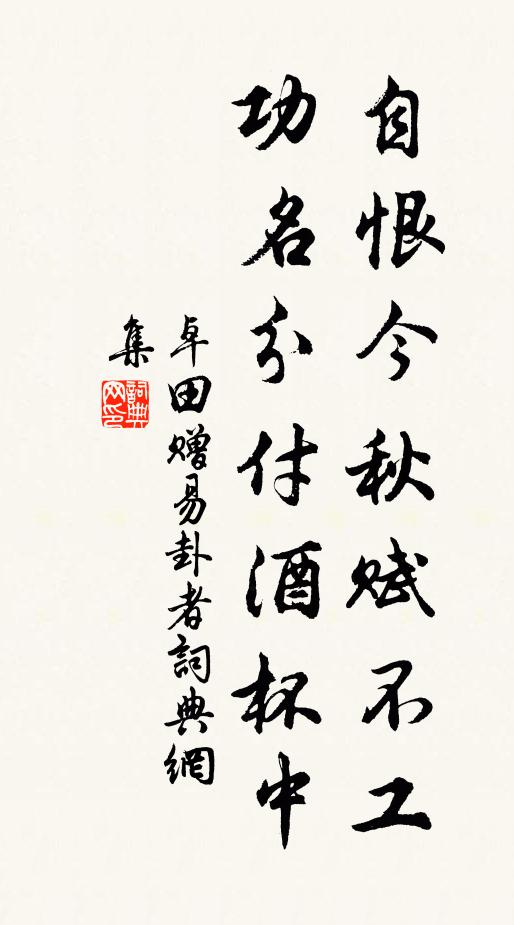 自恨今秋赋不工
功名分付酒杯中
卓田赠易卦者詞典網
集
詞典
网印